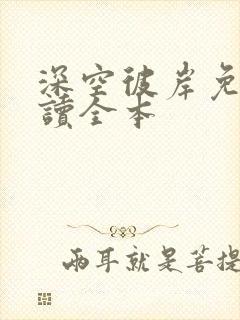 深空彼岸免
讀全本
兩耳就是菩提